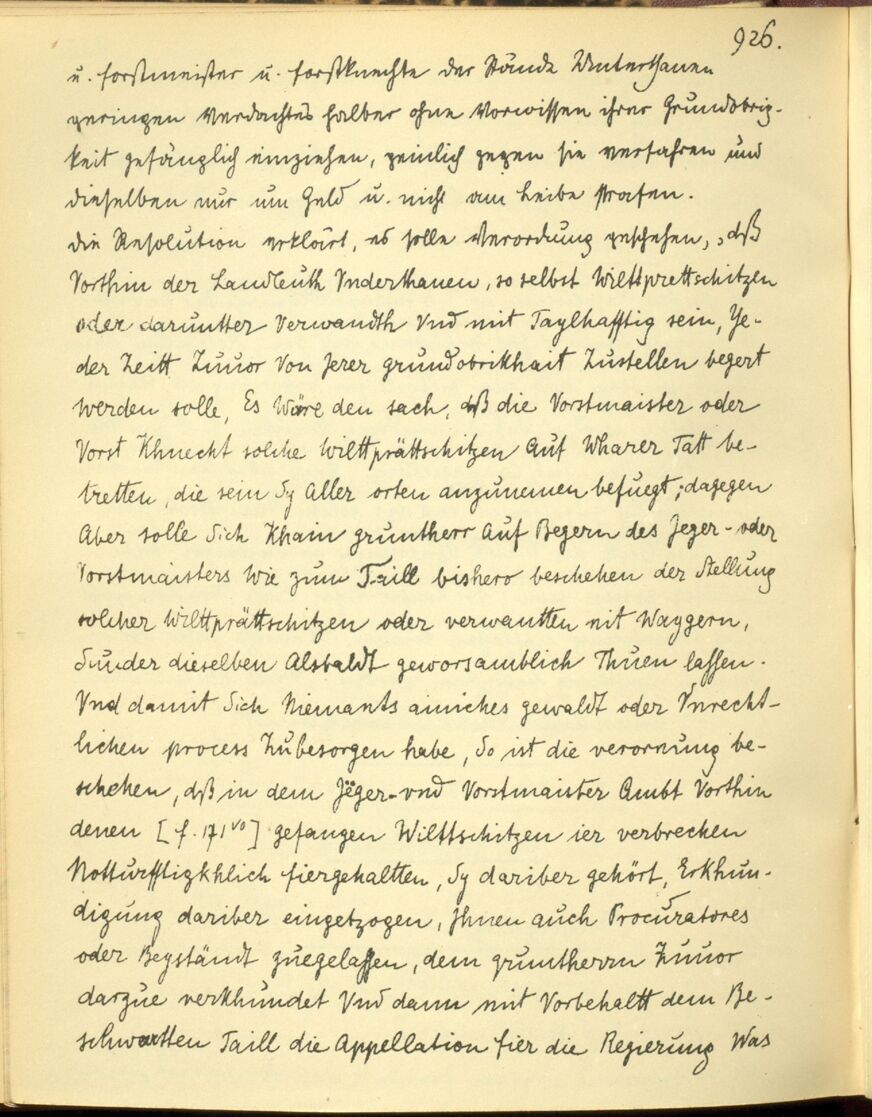 926.
u. Forstmeister u. Forstknechte der Stände Unterthanen
geringen Verdachtes halber ohne Vorwissen ihrer Grundobrig-
keit gefänglich einziehen, peinlich gegen sie verfahren und
dieselben nur um Geld u. nicht am Leibe strafen.
Die Resolution erklärt, es solle Verordnung geschehen, „dß
Vorthin der Landleuth Vnderthanen, so selbst Wilttprettschitzen
oder daruntter Verwandth Vnd mit Taylhafftig sein, Ye-
der Zeitt Zuuor Von Jerer grundobrikhait Zustellen begert
werden solle, Es wäre den sach, dß die Vorstmaister oder
Vorst Khnecht solche wilttprättschitzen Auf Wharer Tatt be-
tretten, die sein Sy Aller orten anzunemen befuegt; dagegen
Aber solle Sich Khain gruntherr Auf Begern des Jeger- oder
Vorstmaisters wie zum Faill bishero beschehen der Stellung
solcher Wilttprättschitzen oder verwantten nit Waygern,
Sunder dieselben Alsbaldt geworsamblich Thuen lassen.
Vnd damit Sich Niemants ainiches gewaldt oder Vnrecht-
lichen process Zubesorgen habe, So ist die verornung be-
schehen, dß in dem Jëger- vnd Vorstmaister Ambt Vorthin
denen [f. 171 vo] gefangen Wilttschitzen ier verbrechen
Notturfftigkhlich fiergehaltten, Sy dariber gehört, Erkhun-
digung dariber eingetzogen, Jhnen auch Procuratores
oder Beyständt zuegelassen, dem gruntherrn Zuuor
darzue verkhundet Vnd dann mit Vorbehaltt dem Be-
schwartten Taill die Appellation fier die Regierung Was